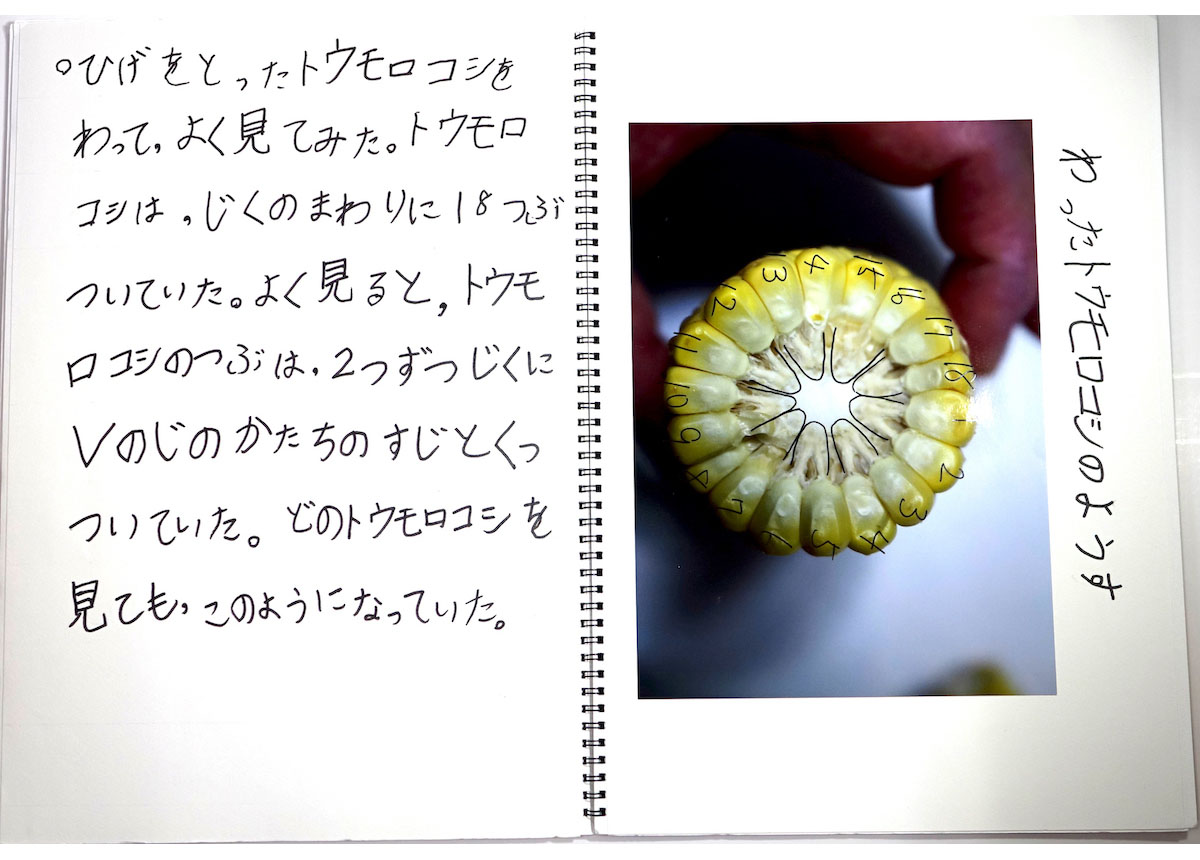 ○ひげをとったトウモロコシを
わって,よく見てみた。トウモロ
コシは,じくのまわりに18つぶ
ついていた。よく見ると,トウモ
ロコシのつぶは,2つずつじくに
Vのじのかたちのすじとくっ
ついていた。どのトウモロコシを
見ても,このようになっていた。
わったトウモロコシのようす
2
3
4
5
6
7
8
9
10
11
12
13
4
15
16
17
18